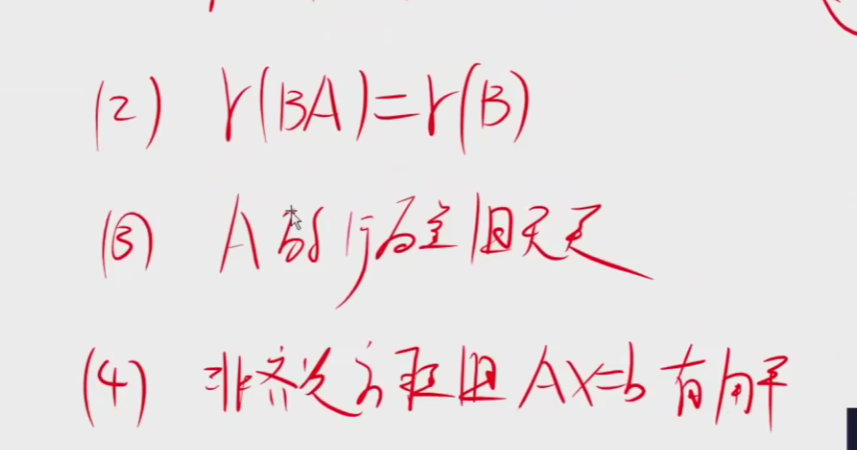 (2) r(BA)=r(B)
(3) A的行向量组无关
(4) 非齐次方程组AX=b有解